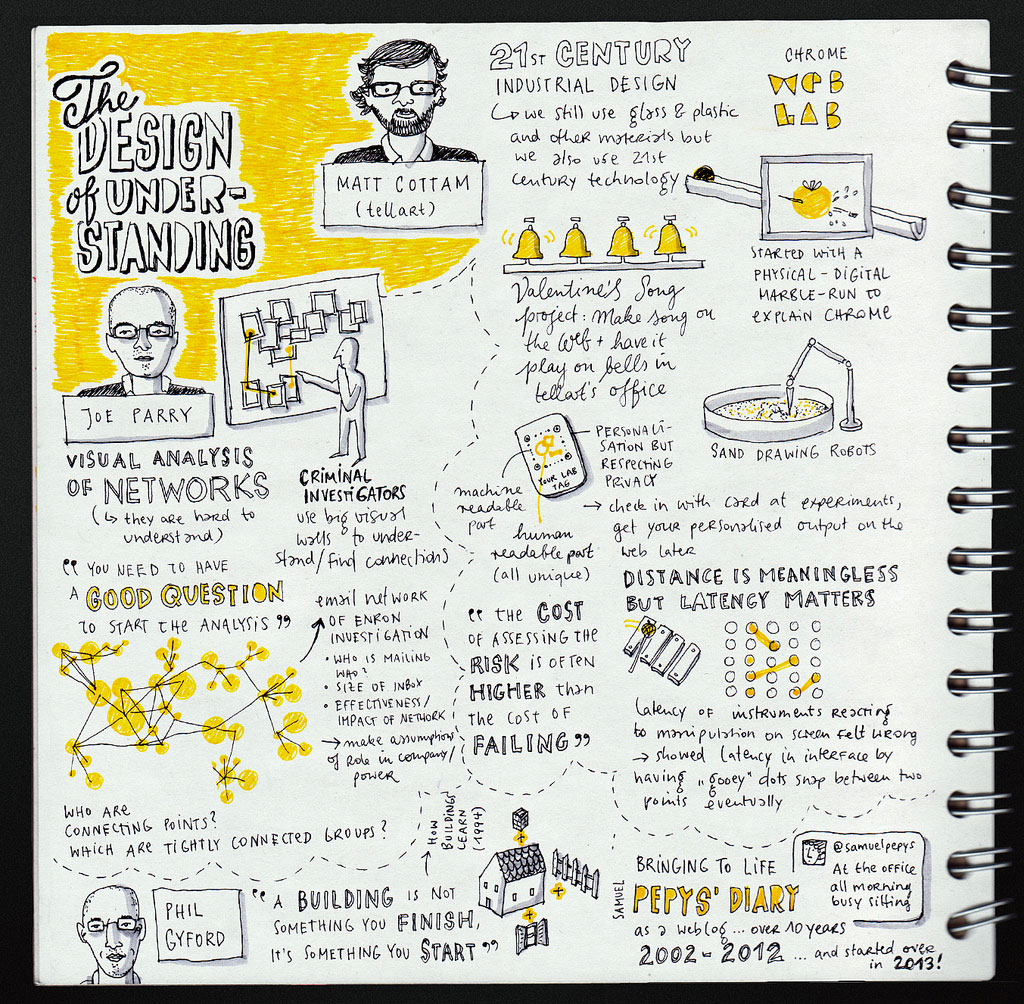 The
DESIGN
of UNDER-
STANDING
MATT COTTAM
(tellart)
21ST CENTURY
INDUSTRIAL DESIGN
↳ we still use glass & plastic
and other materials but
we also use 21st
century technology
CHROME
WEB
LAB
STARTED WITH A
PHYSICAL-DIGITAL
MARBLE-RUN TO
EXPLAIN CHROME
Valentine's Song
project: Make song on
the Web + have it
play on bells in
tellart's office
SAND DRAWING ROBOTS
YOUR LAB
TAG
PERSONALI-
SATION BUT
RESPECTING
PRIVACY
machine
readable
part
human
readable part
(all unique)
→ check in with card at experiments,
get your personalised output on the
web later
"THE COST
OF ASSESSING THE
RISK is often
HIGHER than
the cost of
FAILING"
DISTANCE IS MEANINGLESS
BUT LATENCY MATTERS
latency of instruments reacting
to manipulation on screen felt wrong
→ showed latency in interface by
having „gooey" dots snap between two
points eventually
JOE PARRY
VISUAL ANALYSIS
OF NETWORKS
(↳ they are hard to
understand)
CRIMINAL
INVESTIGATORS
use big visual
walls to under-
stand/find connections
"YOU NEED TO HAVE
A GOOD QUESTION
TO START THE ANALYSIS"
email network
OF ENRON
INVESTIGATION
• WHO IS MAILING
WHO?
• SIZE OF INBOX
• EFFECTIVENESS/
IMPACT OF NETWORK
→ make assumptions
of role in company/
power
WHO ARE
CONNECTING POINTS?
WHICH ARE TIGHTLY CONNECTED GROUPS?
PHIL
GYFORD
"A BUILDING IS NOT
SOMETHING YOU FINISH,
IT'S SOMETHING YOU START"
HOW
BUILDINGS
LEARN
(1994)
BRINGING TO LIFE
SAMUEL
PEPYS' DIARY
as a weblog... over 10 years
2002-2012 ... and started over
in 2013!
@samuelpepys
At the office
all morning
busy sitting